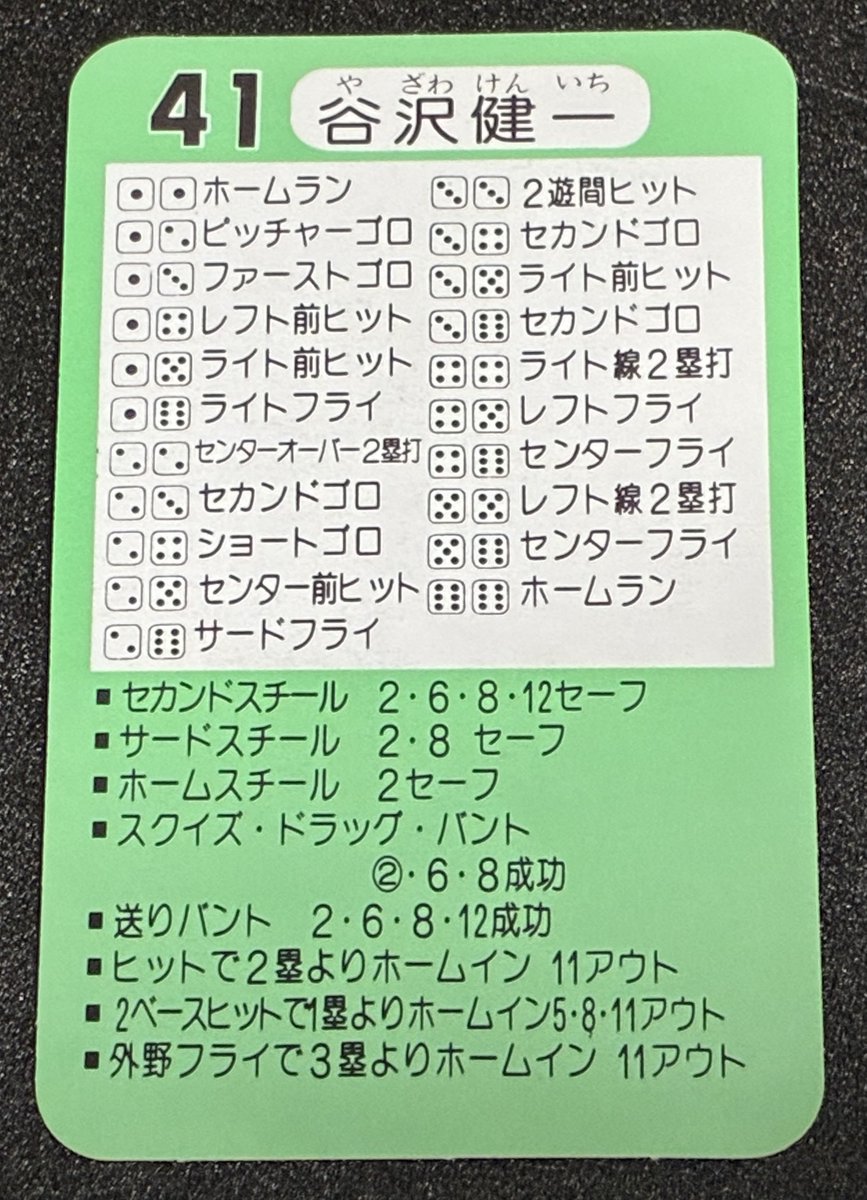 41 谷沢健一
や ざわ けん いち
⚀⚀ホームラン
⚀⚁ピッチャーゴロ
⚀⚂ファーストゴロ
⚀⚃レフト前ヒット
⚀⚄ライト前ヒット
⚀⚅ライトフライ
⚁⚁センターオーバー2塁打
⚁⚂セカンドゴロ
⚁⚃ショートゴロ
⚁⚄センター前ヒット
⚁⚅サードフライ
⚂⚂2遊間ヒット
⚂⚃セカンドゴロ
⚂⚄ライト前ヒット
⚂⚅セカンドゴロ
⚃⚃ライト線2塁打
⚃⚄レフトフライ
⚃⚅センターフライ
⚄⚄レフト線2塁打
⚄⚅センターフライ
⚅⚅ホームラン
■セカンドスチール 2・6・8・12セーフ
■サードスチール 2・8 セーフ
■ホームスチール 2セーフ
■スクイズ・ドラッグ・バント
②・6・8成功
■送りバント 2・6・8・12成功
■ヒットで2塁よりホームイン 11アウト
■2ベースヒットで1塁よりホームイン5・8・11アウト
■外野フライで3塁よりホームイン 11アウト